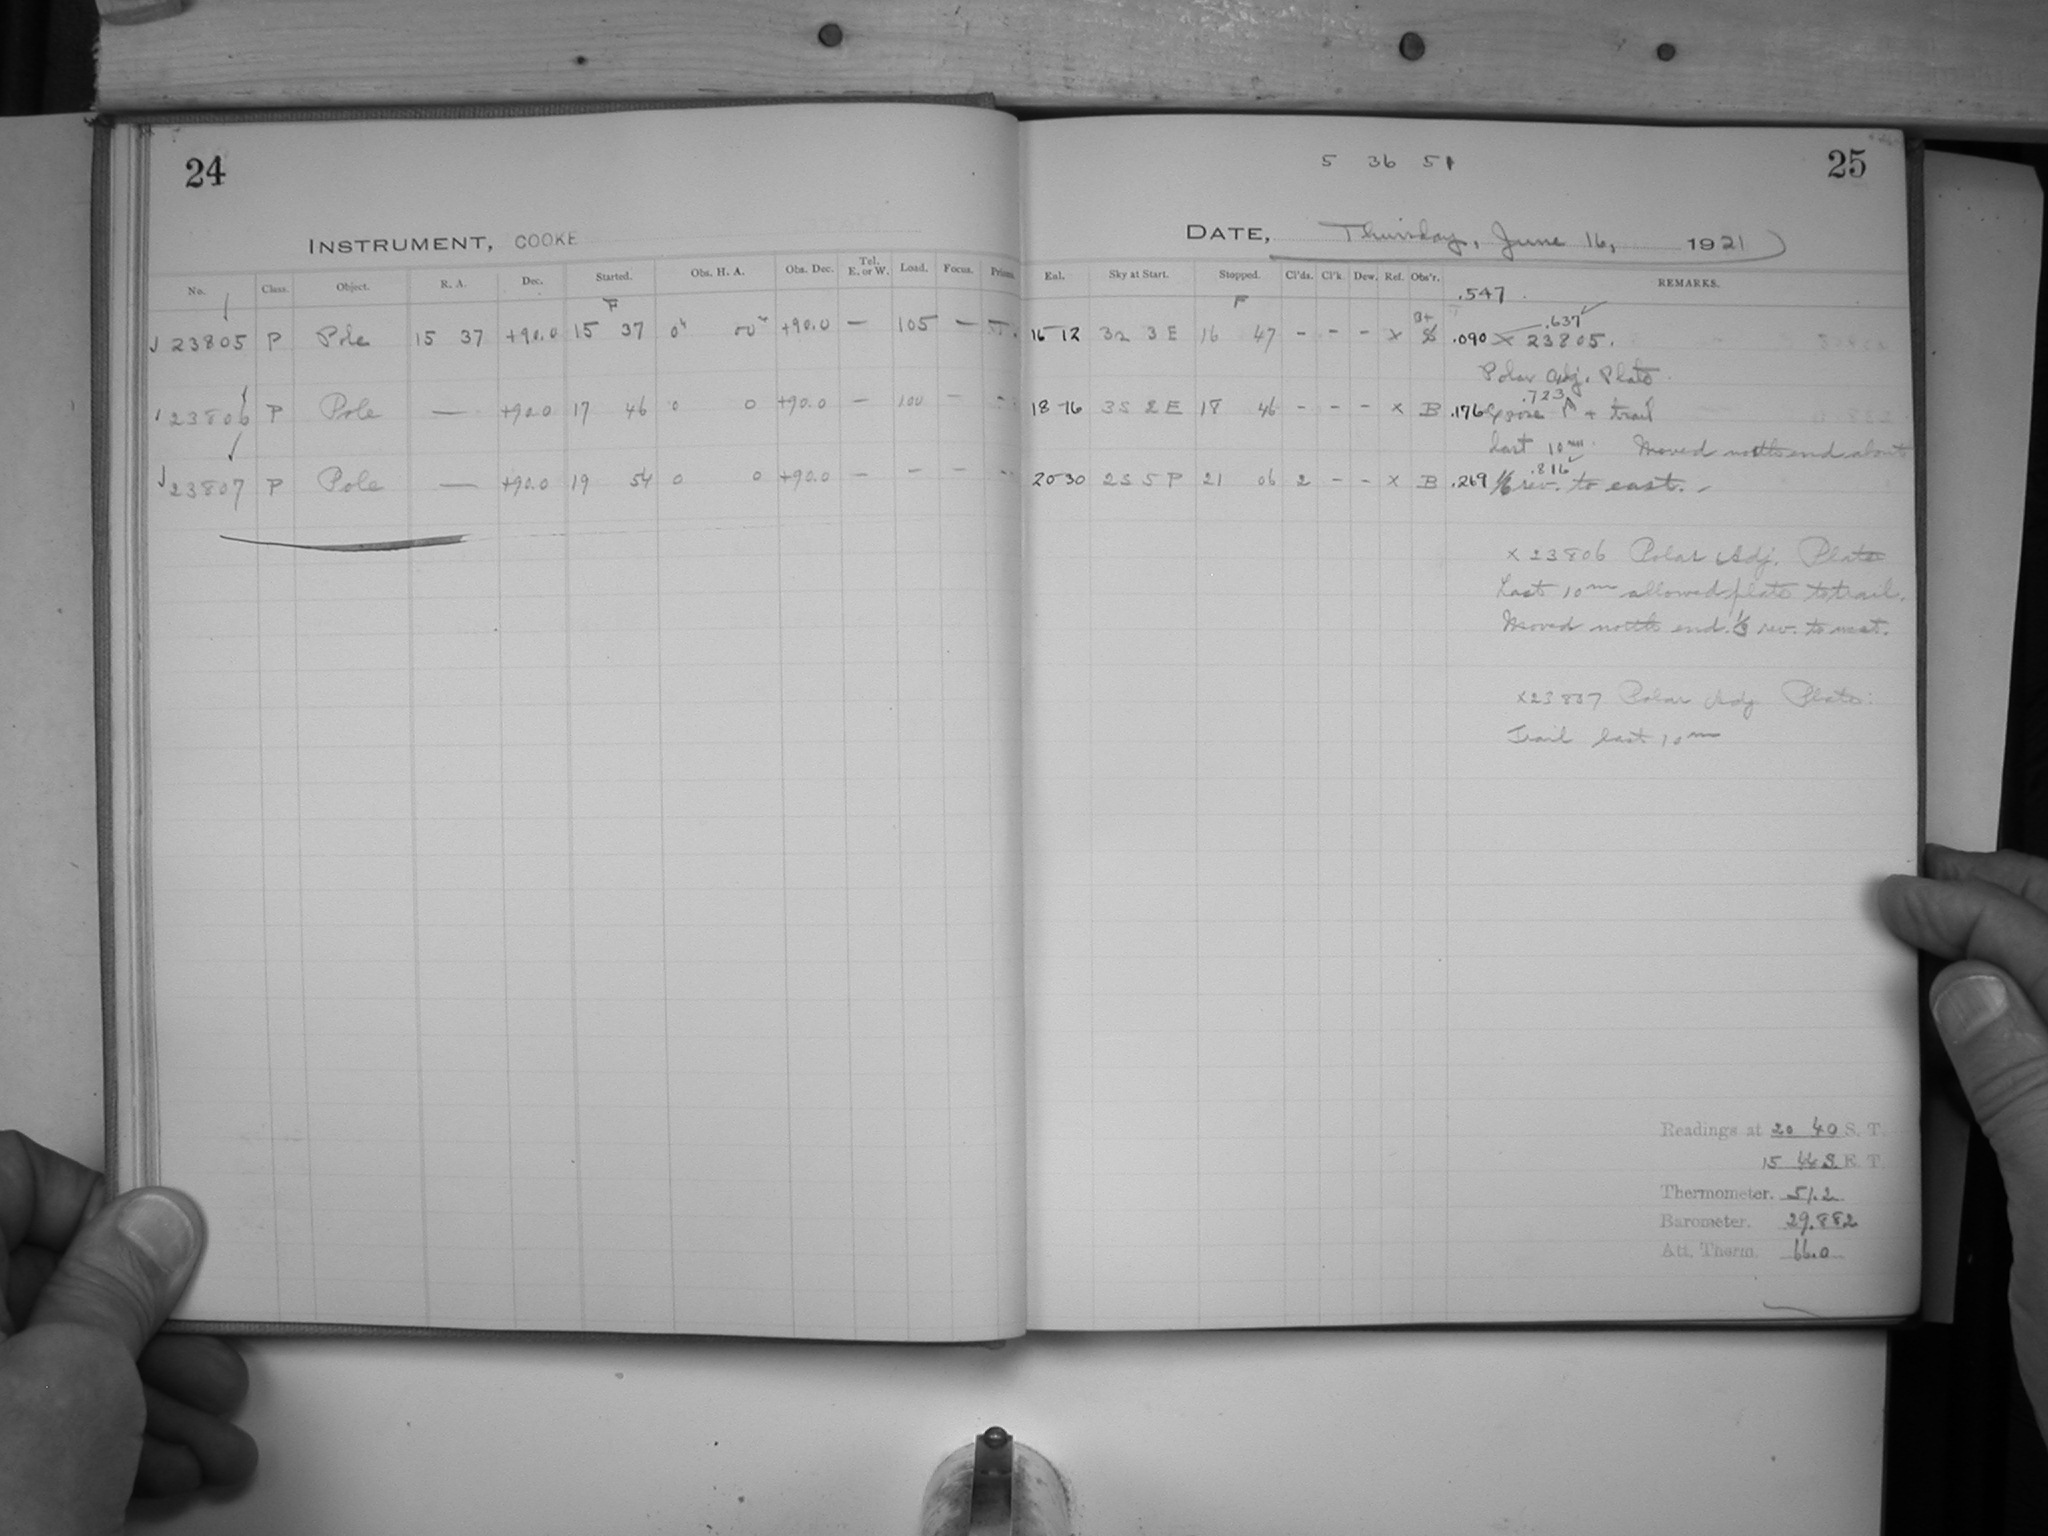 24
INSTRUMENT, COOKE
No. Class. Object. R. A. Dec. Started. Obs. H. A. Obs. Dec. Tel. E. or W. Load. Focus. Prisms.
F
23805 P Pole 15 37 +90.0 15 37 0h 00m +90.0 — 105 — —
23806 P Pole — +90.0 17 46 0 0 +90.0 — 100 — -
23807 P Pole — +90.0 19 54 0 0 +90.0 — — — -
5 36 51
25
DATE, Thursday, June 16, 1921
Eal. Sky at Start. Stopped. Cl'ds. Cl'k Dew. Ref. Obs'r. REMARKS.
F .547
.637
16 12 3 E 16 47 - - - x .090 x 23805.
Polar Adj. Plate
.723
18 16 3S 2E 18 46 - - - x B .176 Expose + trail
last 10m. Moved north end about
.816
20 30 2S 5 P 21 06 2 - - x B .269 1/6 rev. to east.
x 23806 Polar Adj. Plate
Last 10m allowed plate to trail.
Moved north end 1/3 rev. to west.
x23807 Polar Adj Plate.
Trail last 10m
Readings at 20 40 S. T.
15 44 S. E. T.
Thermometer. 51.2
Barometer. 29.882
Att. Therm. 66.0